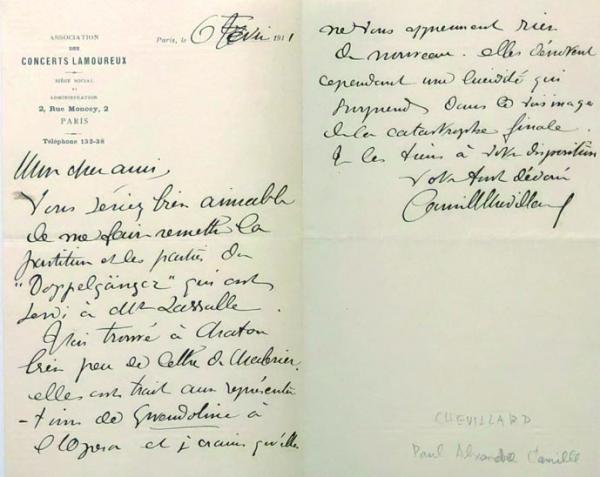 ASSOCIATION
DES
CONCERTS LAMOUREUX
SIÈGE SOCIAL
ET
ADMINISTRATION
2, Rue Moncey, 2
PARIS
Téléphone 132-38
Paris, le 6 février 1911
Mon cher ami,
Vous seriez bien aimable
de me faire remettre la
partition et les parties du
"Doppelgänger" qui ont
servi à Mr Lassalle.
J'ai trouvé à Chatou
bien peu de lettres de Chabrier.
elles ont trait aux représenta
-tions de Gwendoline à
l'Opéra et je crains qu'elles
ne vous apprennent rien
de nouveau. elles dénotent
cependant une lucidité qui
surprend dans le voisinage
de la catastrophe finale.
Je les tiens à votre disposition
Votre tout dévoué
Camille Chevillard
CHEVILLARD
Paul Alexandre Camille